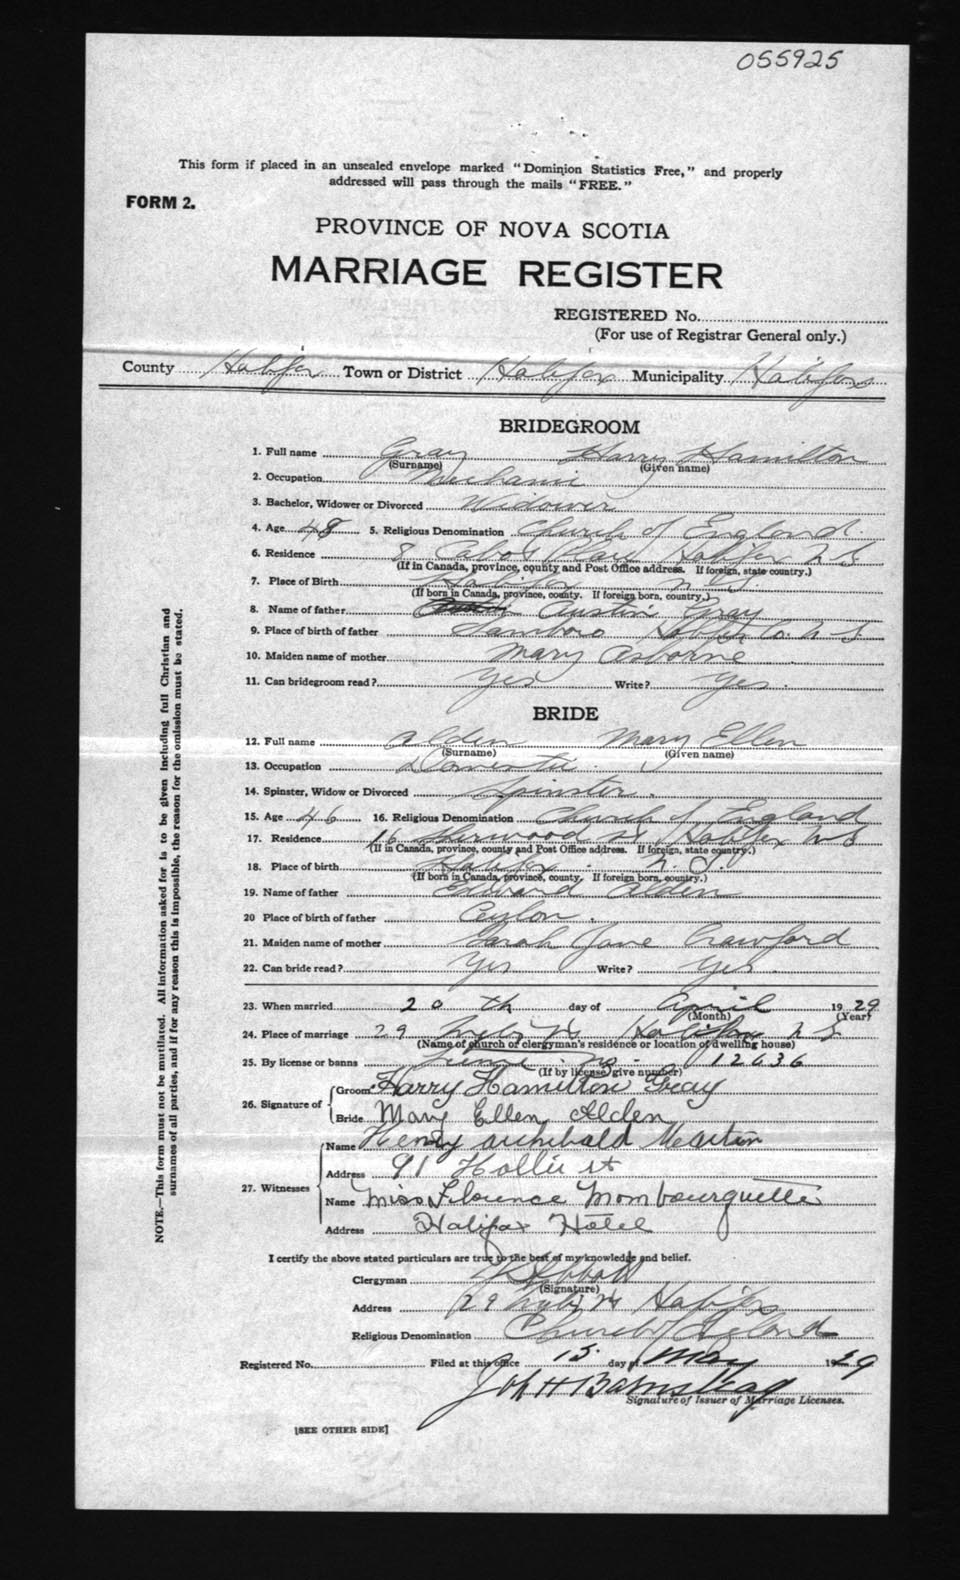 055925
This form if placed in an unsealed envelope marked "Dominion Statistics Free," and properly
addressed will pass through the mails "FREE."
FORM 2.
PROVINCE OF NOVA SCOTIA
MARRIAGE REGISTER
REGISTERED No.
(For use of Registrar General only.)
County Halifax Town or District Halifax Municipality Halifax
BRIDEGROOM
1. Full name Gray Harry Hamilton
(Surname) (Given name)
2. Occupation Mechanic
3. Bachelor, Widower or Divorced Widower
4. Age 48 5. Religious Denomination Church of England
6. Residence 8 Cabot Place Halifax N S
(If in Canada, province, county and Post Office address. If foreign, state country.)
7. Place of Birth Halifax N S
(If born in Canada, province, county. If foreign born, country.)
8. Name of father Austin Gray
9. Place of birth of father Sambro Halifax Co. N S.
10. Maiden name of mother Mary Osborne
11. Can bridegroom read? Yes Write? Yes.
BRIDE
12. Full name Alden Mary Ellen
(Surname) (Given name)
13. Occupation Domestic.
14. Spinster, Widow or Divorced Spinster.
15. Age 46 16. Religious Denomination Church of England
17. Residence 16 Sherwood St Halifax N S
(If in Canada, province, county and Post Office address. If foreign, state country.)
18. Place of birth Halifax. N. S.
(If born in Canada, province, county. If foreign born, country.)
19. Name of father Edward Alden
20 Place of birth of father Ceylon.
21. Maiden name of mother Sarah Jane Crawford
22. Can bride read? Yes Write? Yes.
23. When married 20th day of April 1929
(Month) (Year)
24. Place of marriage 29 Halifax N S
(Name of church or clergyman's residence or location of dwelling house)
25. By license or banns License No. 12636
(If by license give number)
26. Signature of Groom Harry Hamilton Gray
Bride Mary Ellen Alden
27. Witnesses Name Henry Archibald Martin
Address 91 Hollis st
Name Miss Florence Mombourquette
Address Halifax Hotel
I certify the above stated particulars are true to the best of my knowledge and belief.
Clergyman
(Signature)
Address 29 Halifax
Religious Denomination Church of England
Registered No. Filed at this office 15 day of May 1929
Signature of Issuer of Marriage Licenses.
[SEE OTHER SIDE]
NOTE.—This form must not be mutilated. All information asked for is to be given including full Christian and
surnames of all parties, and if for any reason this is impossible, the reason for the omission must be stated.